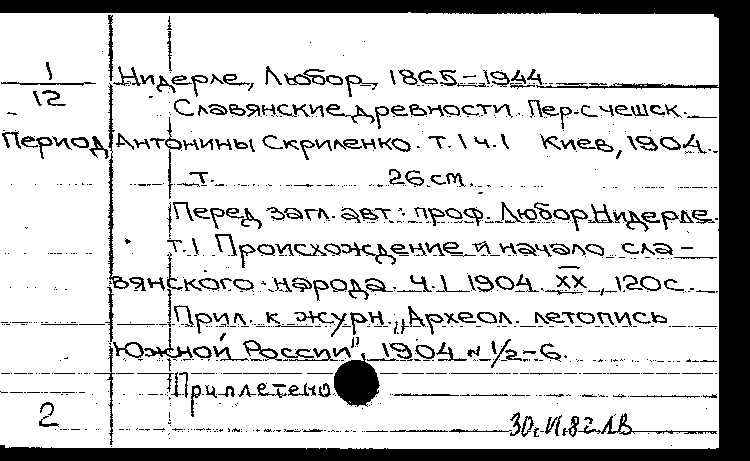 1/12
Нидерле, Любор, 1865-1944
Славянские древности Пер. с чешск.
Период Антонины Скриленко. т. 1 ч. 1 Киев, 1904.
т. 26 см
Перед загл. авт: проф. Любор Нидерле.
т. 1 Происхождение и начало сла-
вянского народа ч. 1 1904 XX, 120 с.
Прил. к журн. „Археол. летопись
Южной России", 1904 № 1/2-6.
Приплетено
2
30. VI. 82 ЛВ